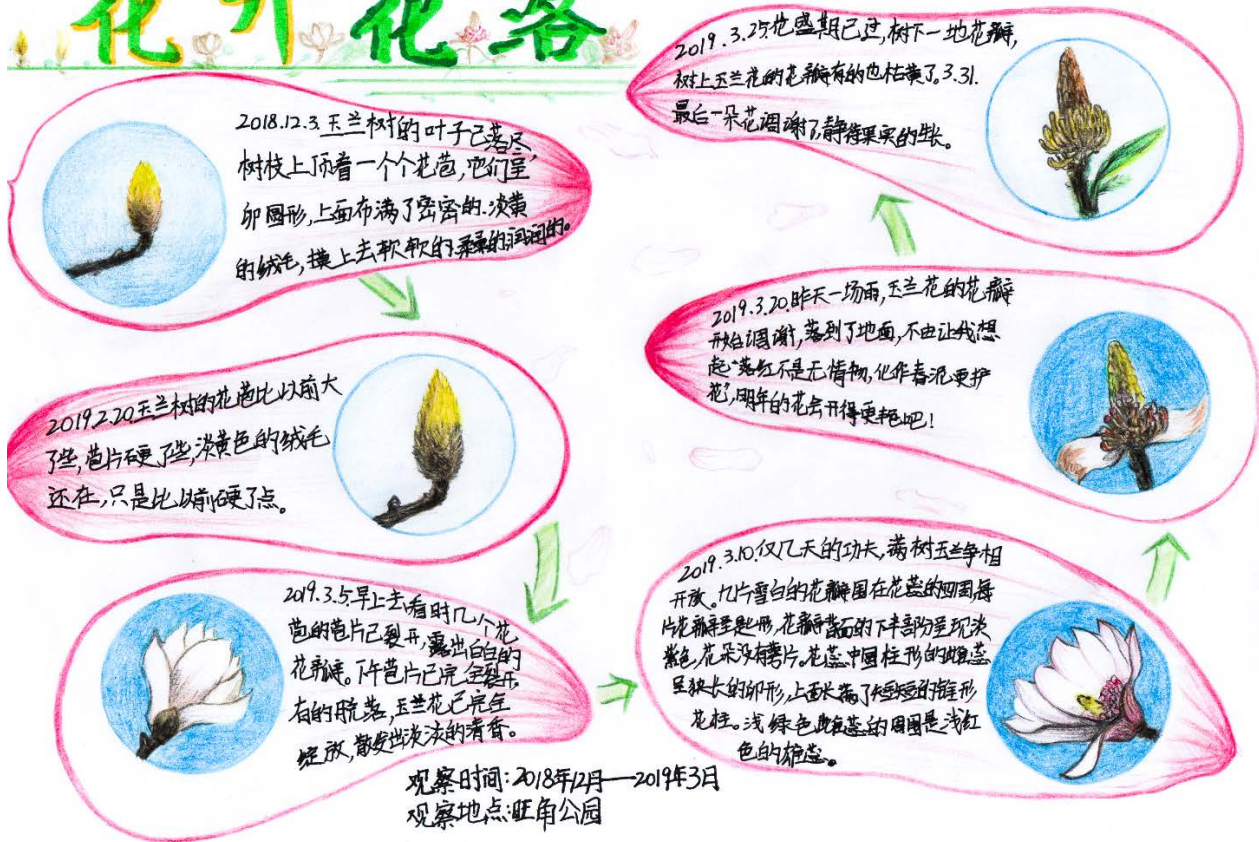 花开花落
2018.12.3.玉兰树的叶子已落尽,
树枝上顶着一个个花苞,它们呈
卵圆形,上面布满了密密的.淡黄
的绒毛,摸上去软软的.柔柔的.润润的。
2019.2.20.玉兰树的花苞比以前大
了些,苞片硬了些,淡黄色的绒毛
还在,只是比以前硬了点。
2019.3.5.早上去看时几个花
苞的苞片已裂开,露出白白的
花瓣。下午苞片已完全裂开,
有的脱落,玉兰花已完全
绽放,散发出淡淡的清香。
2019.3.10.仅几天的功夫,满树玉兰争相
开放。九片雪白的花瓣围在花蕊的四周.每
片花瓣呈匙形,花瓣背面的下半部分呈现淡
紫色,花朵没有萼片。花蕊中圆柱形的雌蕊
呈狭长的卵形,上面长满了短短的锥形
花柱。浅绿色雌蕊的周围是浅红
色的雄蕊。
2019.3.20.昨天一场雨,玉兰花的花瓣
开始凋谢,落到了地面,不由让我想
起“落红不是无情物,化作春泥更护
花”,明年的花会开得更艳吧!
2019.3.25.花盛期已过,树下一地花瓣,
树上玉兰花的花瓣有的也枯黄了。3.31.
最后一朵花凋谢了,静待果实的生长。
观察时间:2018年12月——2019年3月
观察地点:旺角公园